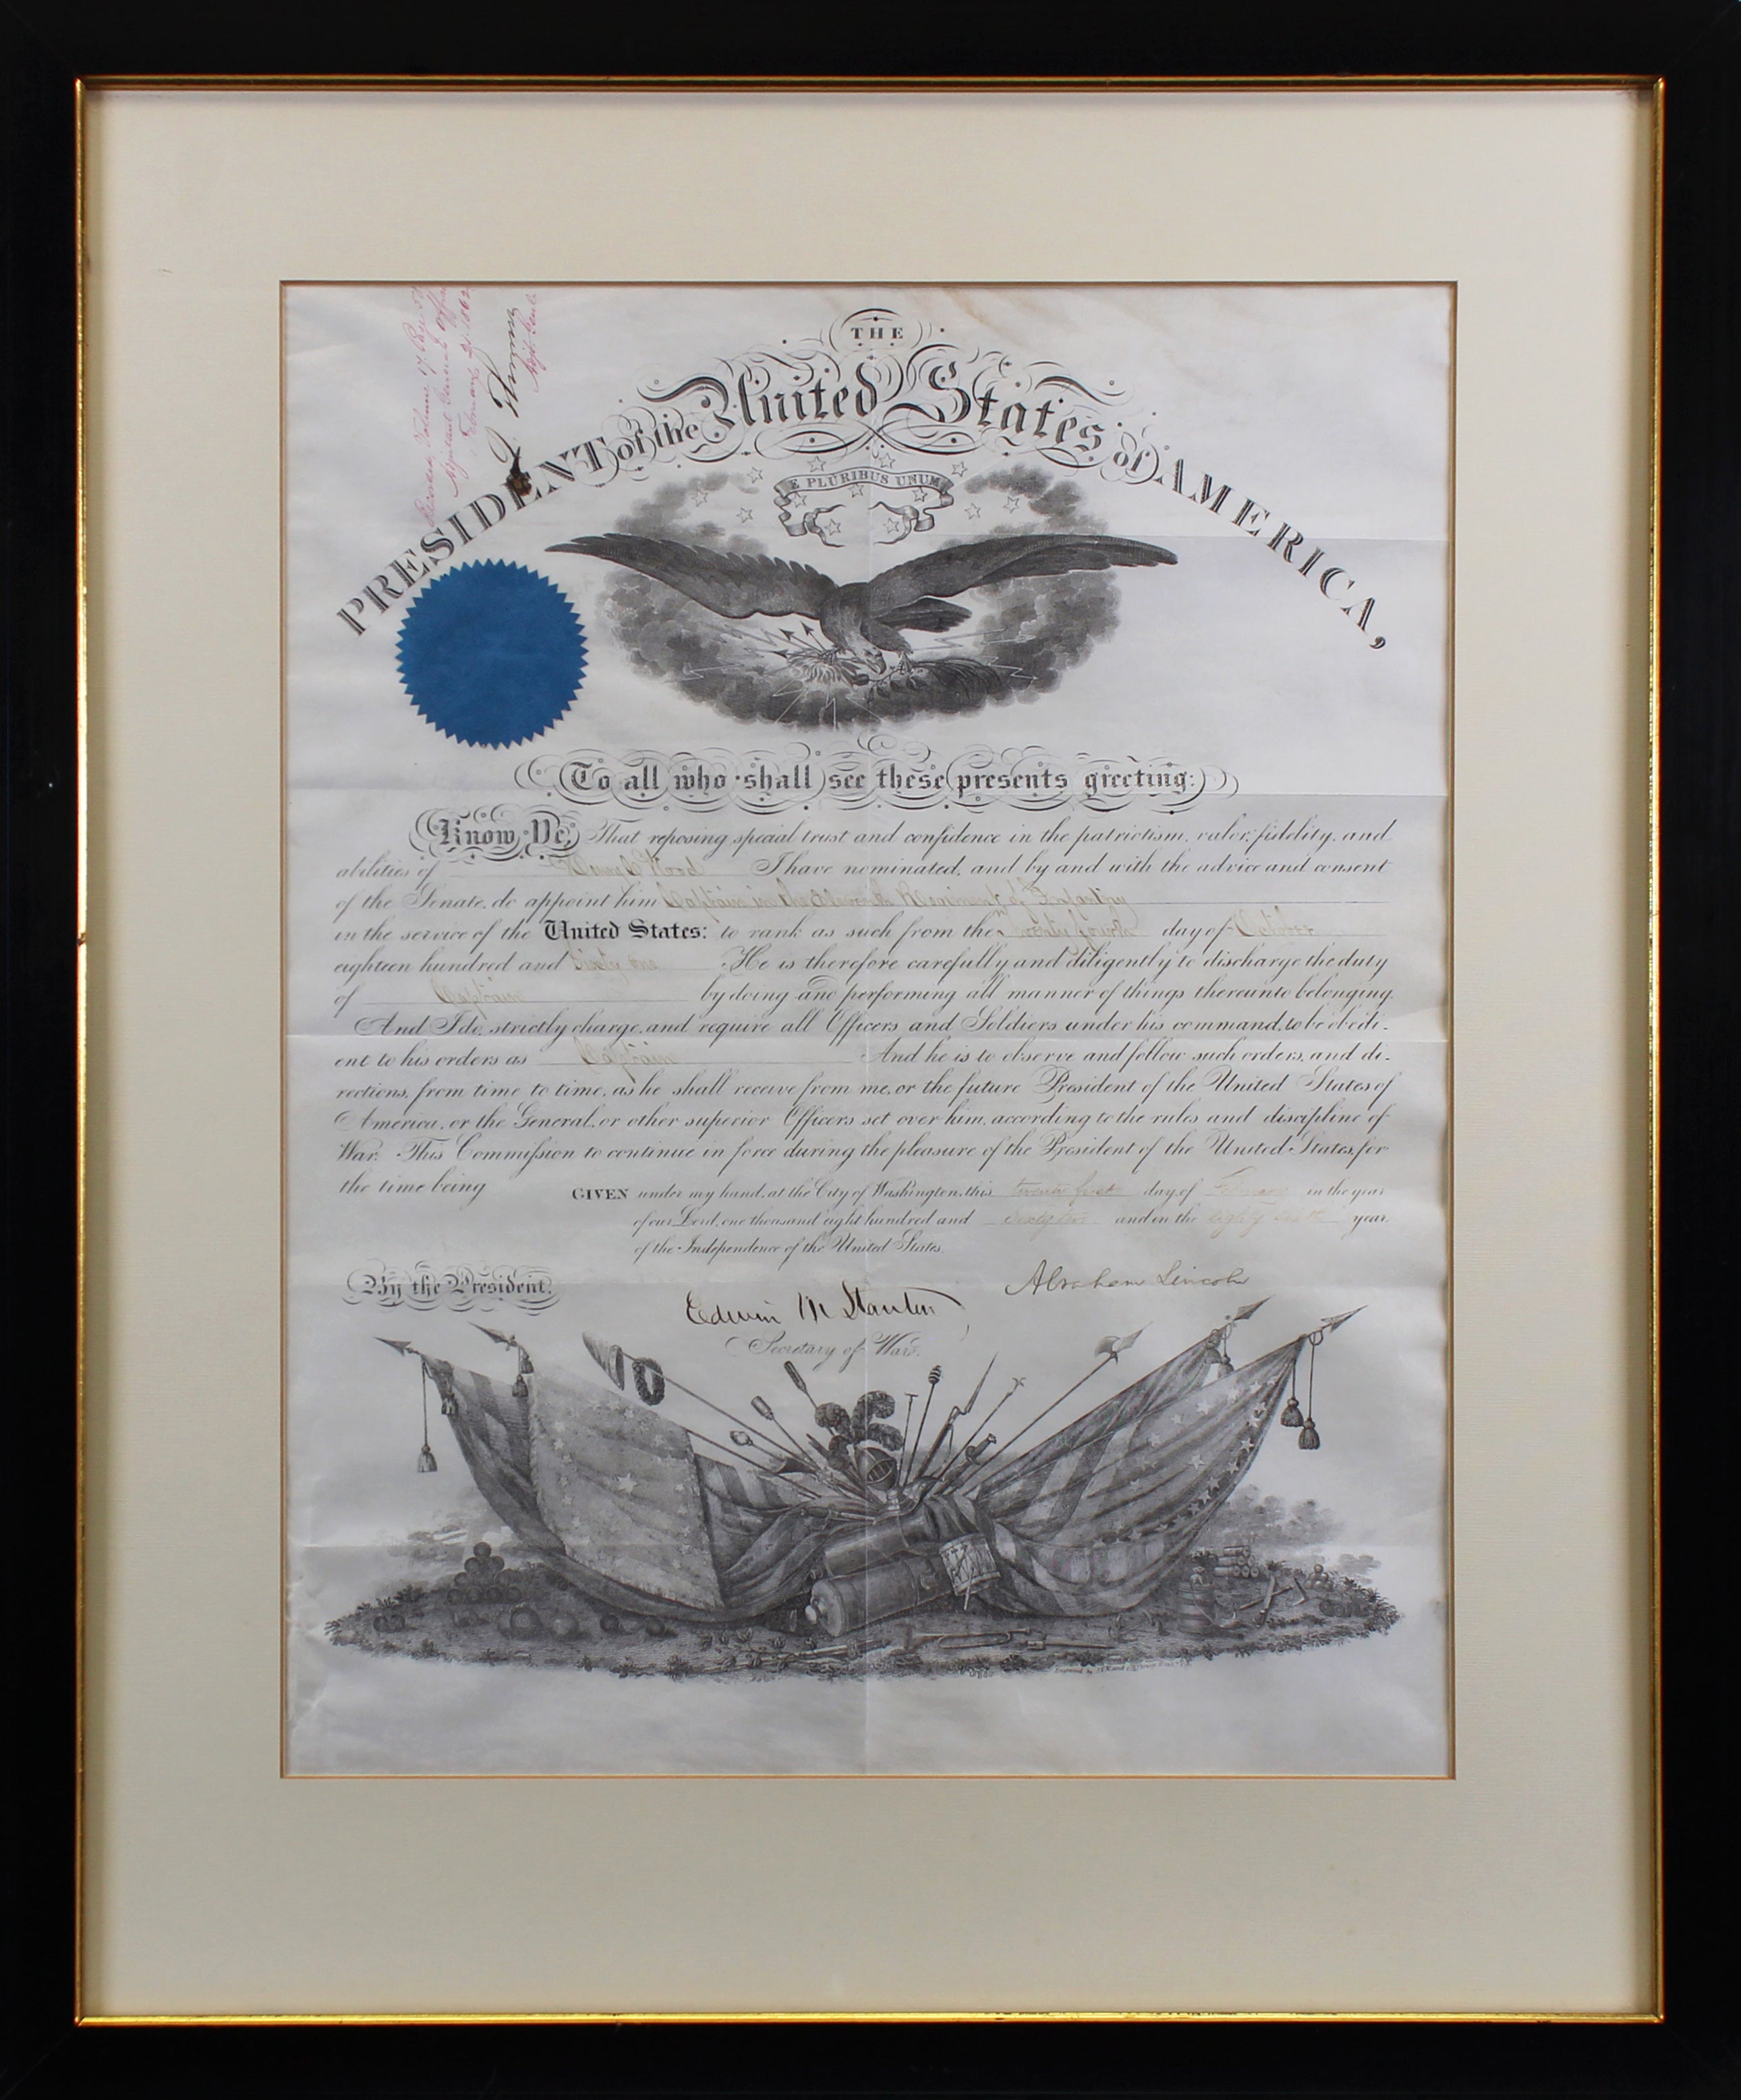 THE
PRESIDENT of the United States of AMERICA,
E PLURIBUS UNUM
To all who shall see these presents greeting:
Know Ye, That reposing special trust and confidence in the patriotism, valor, fidelity, and
abilities of I have nominated, and by and with the advice and consent
of the Senate, do appoint him Captain in the Eleventh Regiment of Infantry
in the service of the United States: to rank as such from the twenty fourth day of October
eighteen hundred and Sixty one He is therefore carefully and diligently to discharge the duty
of Captain by doing and performing all manner of things thereunto belonging.
And I do strictly charge, and require all Officers and Soldiers under his command, to be obedi-
ent to his orders as Captain And he is to observe and follow such orders, and di-
rections, from time to time, as he shall receive from me, or the future President of the United States of
America, or the General, or other superior Officers set over him, according to the rules and discipline of
War. This Commission to continue in force during the pleasure of the President of the United States, for
the time being
GIVEN under my hand, at the City of Washington, this twenty first day of February in the year
of our Lord, one thousand eight hundred and sixty two and in the eighty sixth year
of the Independence of the United States.
By the President,
Abraham Lincoln
Edwin M Stanton
Secretary of War.